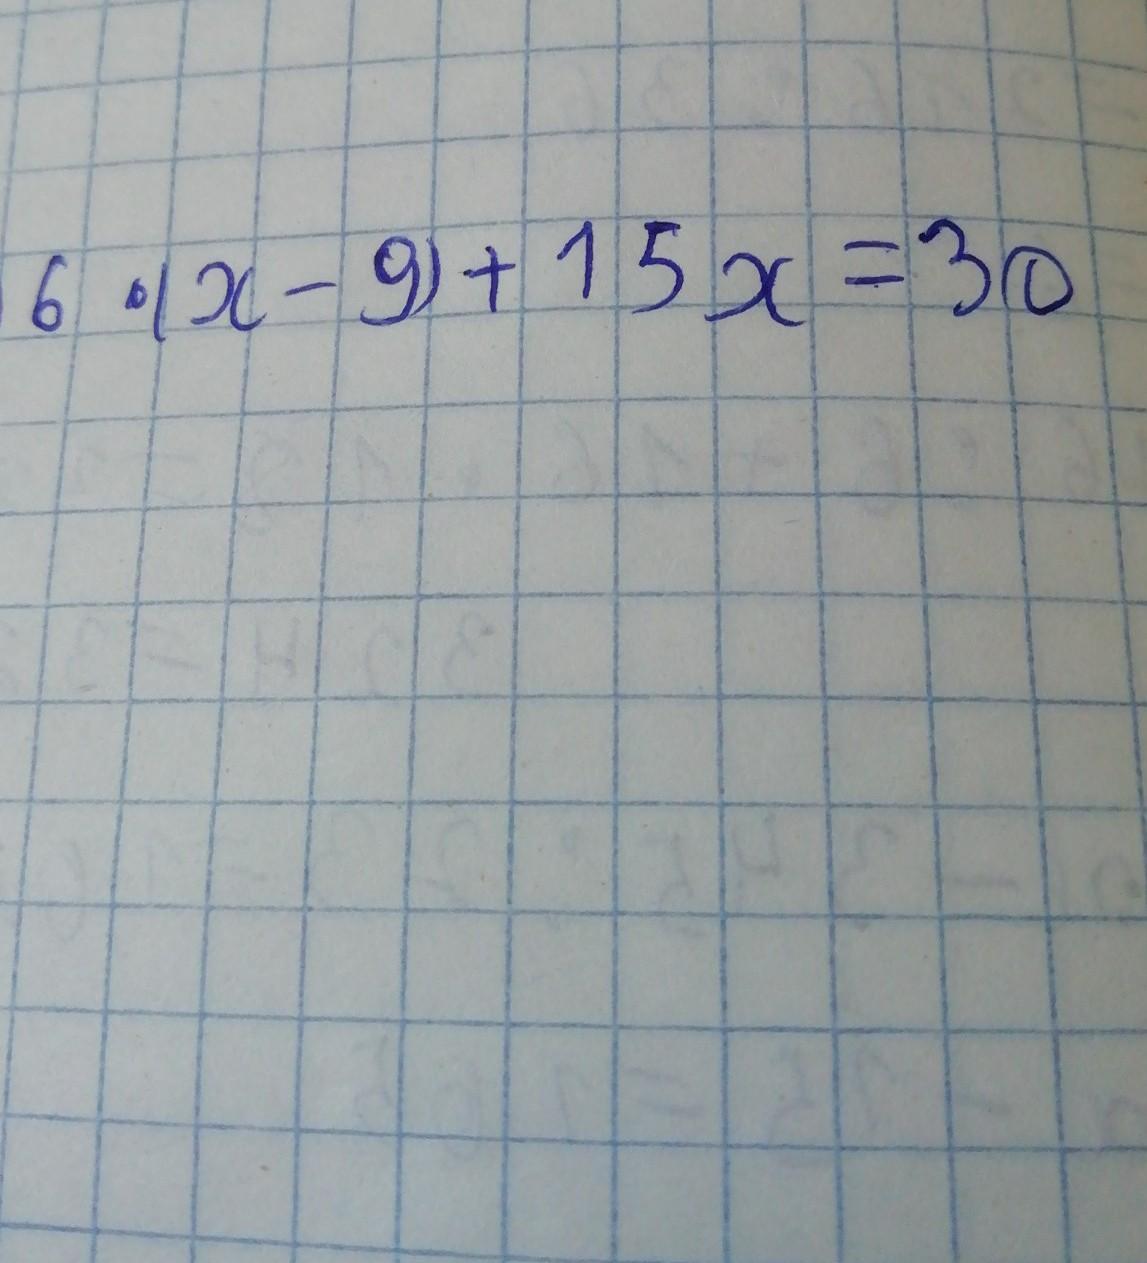 6 · (x - 9) + 15x = 30